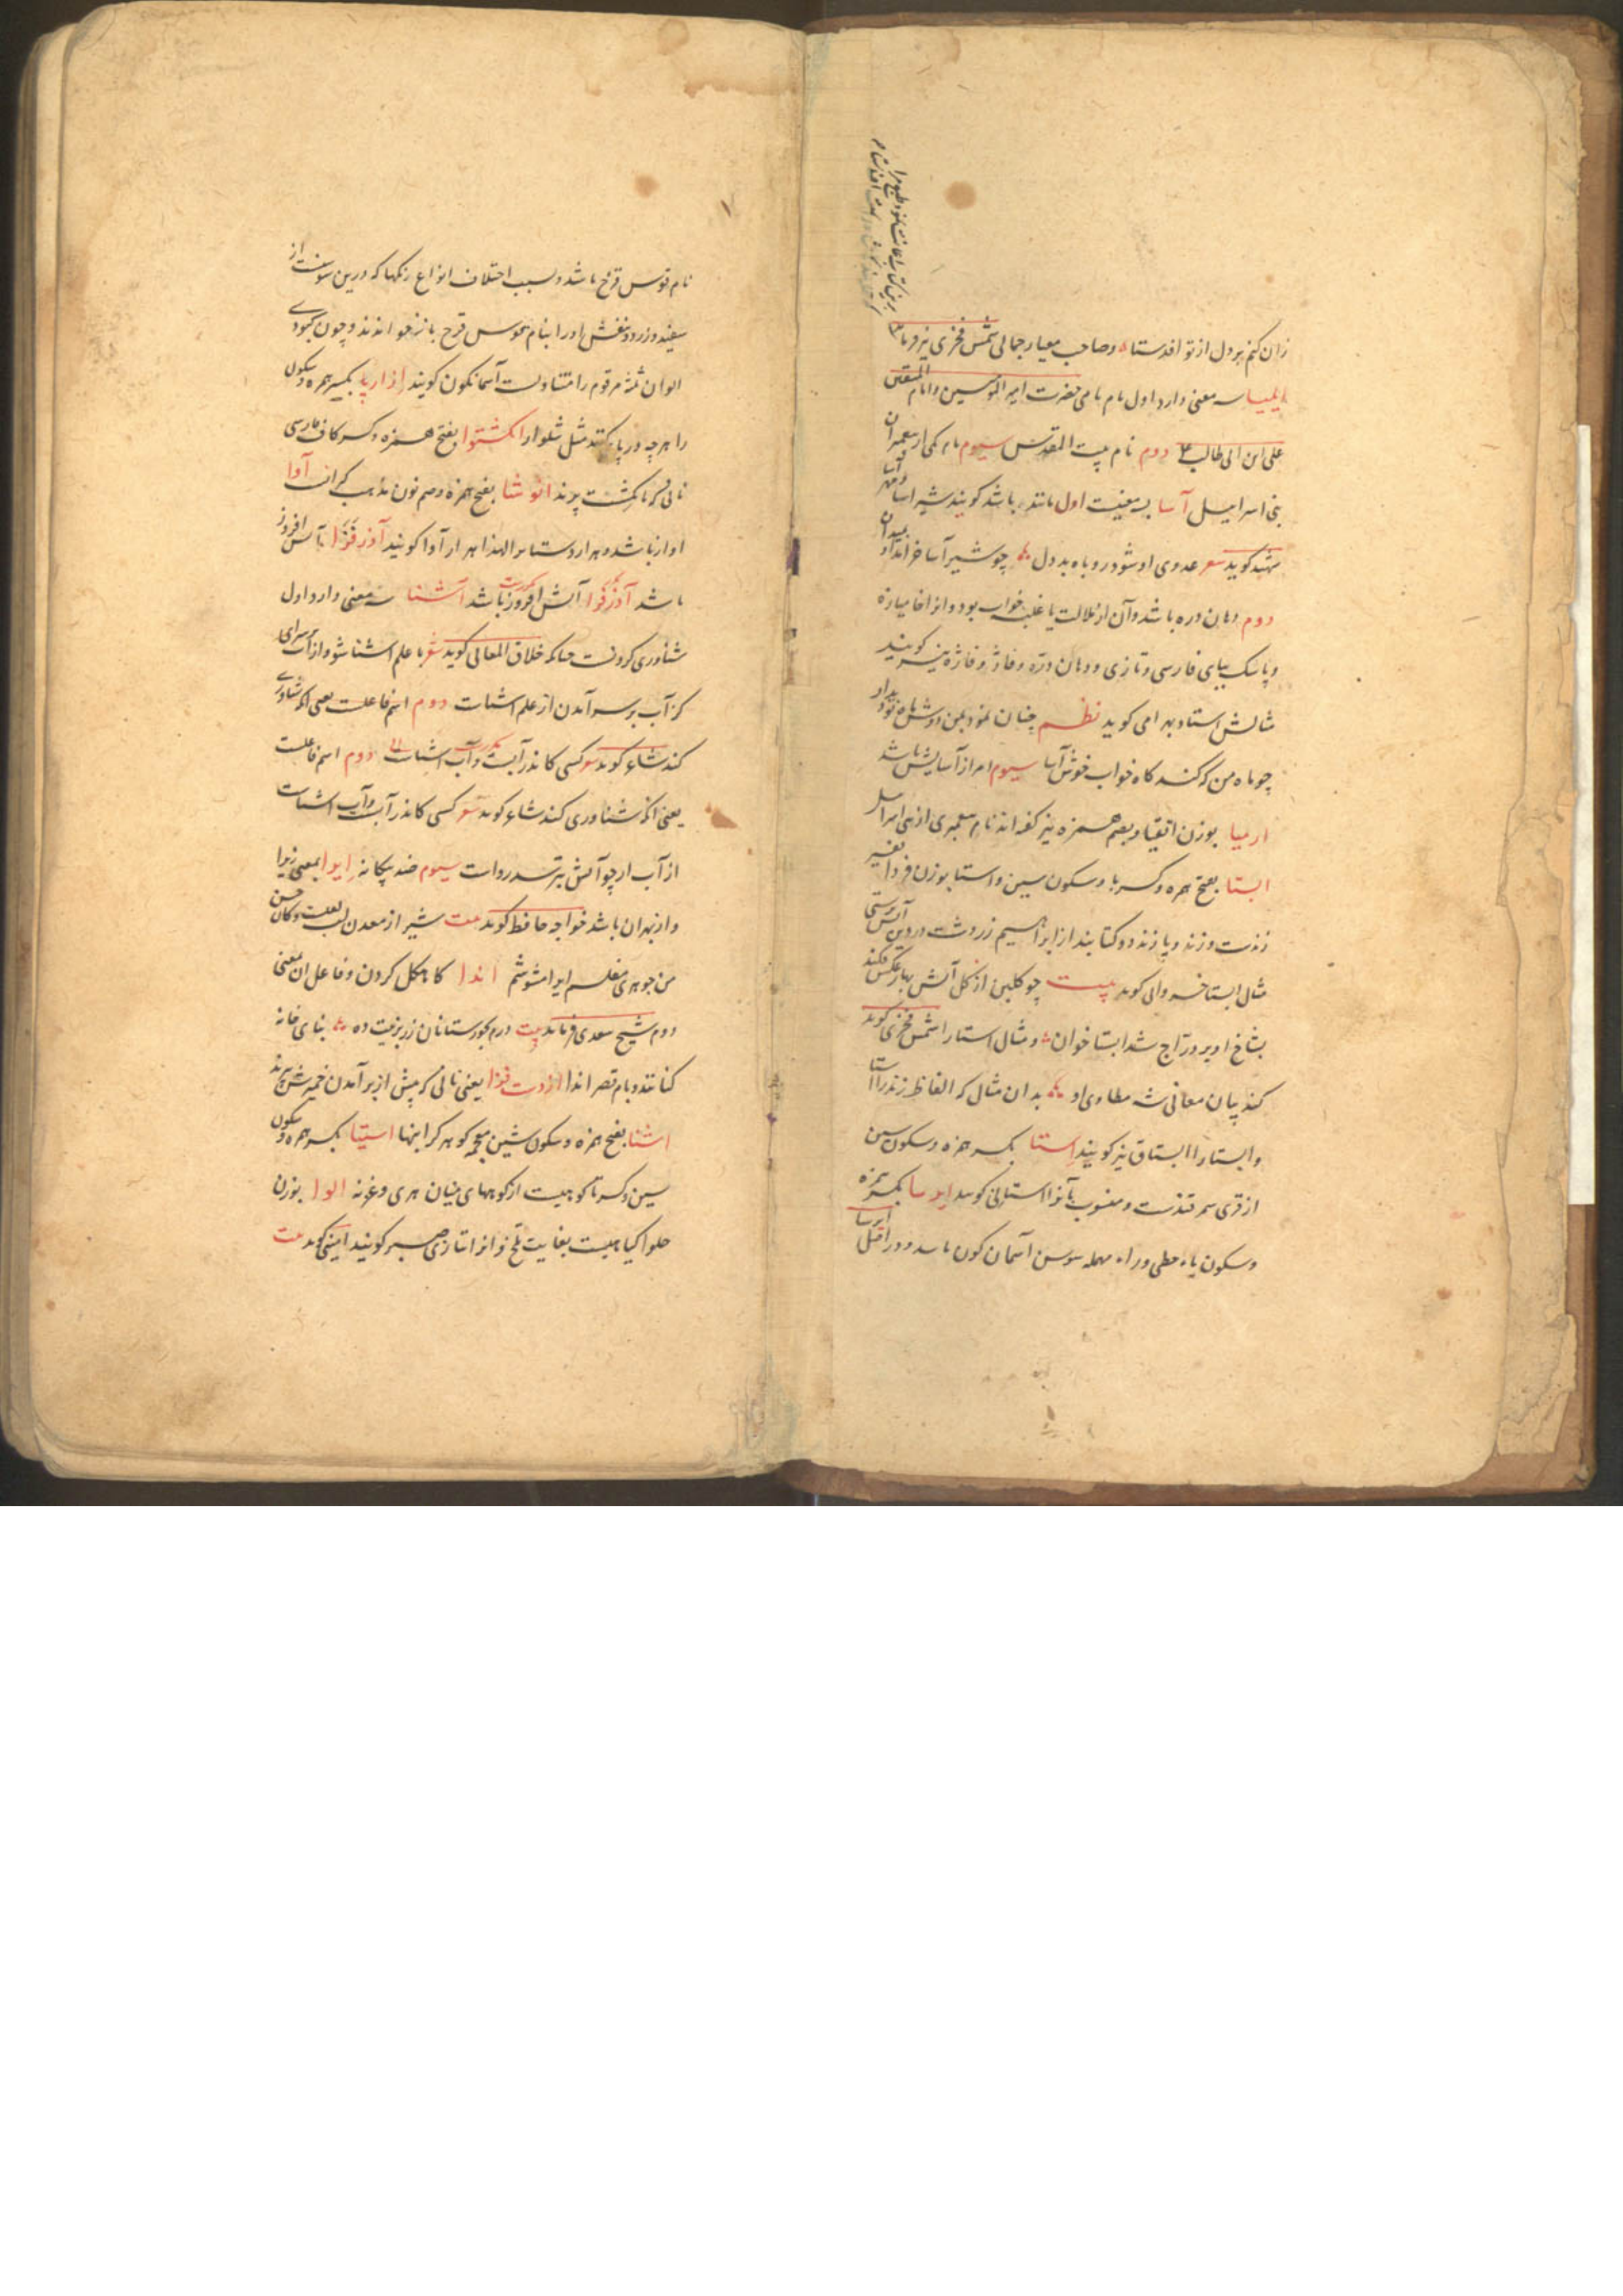 زان کنم بر دل از تو افدستا و صاحب معیار جمالی شمس فخری نیز
ایلیا سه معنی دارد اول نام نامی حضرت امیر المومنین و امام المتقین
علی ابن ابی طالب دوم نام بیت المقدس سیوم نام یکی از پیغمبران
بنی اسراییل آسا بسه معنیست اول مانند باشد کویند شیر آسا
کوید شعر عدوی او شود روباه بد دل چو شیر آسا خرامد او بمیدان
دوم دهان دره باشد و آن از ملالت یا غلبه خواب بود و انرا خامیازه
و پاسک ببای فارسی و تازی و دهان درّه و فاژ و فاژه نیز کویند
مثالش استاد بهرامی کوید نظم چنان نمود بمن دوش ماه نو دیدار
چو ماه من که کند کاه خواب خوش آسا سیوم امر از آسایش باشد
ارمیا بوزن اتقیا و بضم همزه نیز کفته اند نام پیغمبری از بنی اسرائیل
ابستا بفتح همزه و کسر با و سکون سین و استا بوزن فردا تفسیر
زندست و زند و پازند دو کتابند از ابراهیم زردشت در دین آتش پرستی
مثال ابستا خسروانی کوید بیت چو کلبن از کل آتش نهاد عکس فکند
بشاخ او بر درّاج شد ابستا خوان و مثال استا را شمس فخری کوید
کند بیان معانی شه مطاوی او بدان مثال که الفاظ زند را استا
و ابستا را ابستاق نیز کویند اِستا بکسر همزه و سکون سین
از قری سمرقندست و منسوب بآنرا استائی کویند ایرسا بکسر همزه
و سکون یاء حطی و راء مهمله سوسن آسمان کون باشد و در اصل ایرسا
نام قوس قزح باشد و بسبب اختلاف انواع رنکها که درین سوسنست از
سفید و زرد و بنفش او را بنام قوس قزح باز خوانند و چون کبودی
الوان ثلثه مرقوم را متناولست آسمانکون کویند ازارپا بکسر همزه و سکون
را هر چه در پا کنند مثل شلوار انکشتوا بفتح همزه و کسر کاف فارسی
نانی که بانکشت پزند انوشا بفتح همزه و ضم نون مذهب کبرانست آوا
اواز باشد و هزار دستانرا لهذا هزار آوا کویند آذرفزا آتش افروز
باشد آذرفزا آتش افروز باشد آشنا سه معنی دارد اول
شناوری کردنست چنانکه خلاق المعانی کوید شعر با علم آشنا شو و از آب بر سر آی
کز آب بر سر آمدن از علم آشناست دوم اسم فاعلست یعنی آنکه شناوری
کند شاعر کوید شعر کسی کاندر آبست و آب آشناست دوم اسم فاعلست
یعنی آنکه شناوری کند شاعر کوید شعر کسی کاندر آب و آب آشناست
از آب ار چو آتش بترسد رواست سیوم ضد بیکانه ایرا بمعنی زیرا
و از بهر آن باشد خواجه حافظ کوید بیت شیراز معدن لب لعلست و کان حسن
من جوهری مفلسم ایرا مشوشم اندا کاهکل کردن و فاعل ان معنی
دوم شیخ سعدی فرماید بیت درم بجورستانان زر بزینت ده بنای خانه
کنانند و بام قصر اندا یعنی نانی که پیش از بر آمدن خمیرش پزند
اشنا بفتح همزه و سکون شین معجمه کوهر کرانبها استیا بکسر همزه و سکون
سین و کسر تا کوهیست از کوههای میان هری و غزنه الوا بوزن
حلوا کیاهیست بغایت تلخ و انرا بتازی صبر کویند کوید بیت